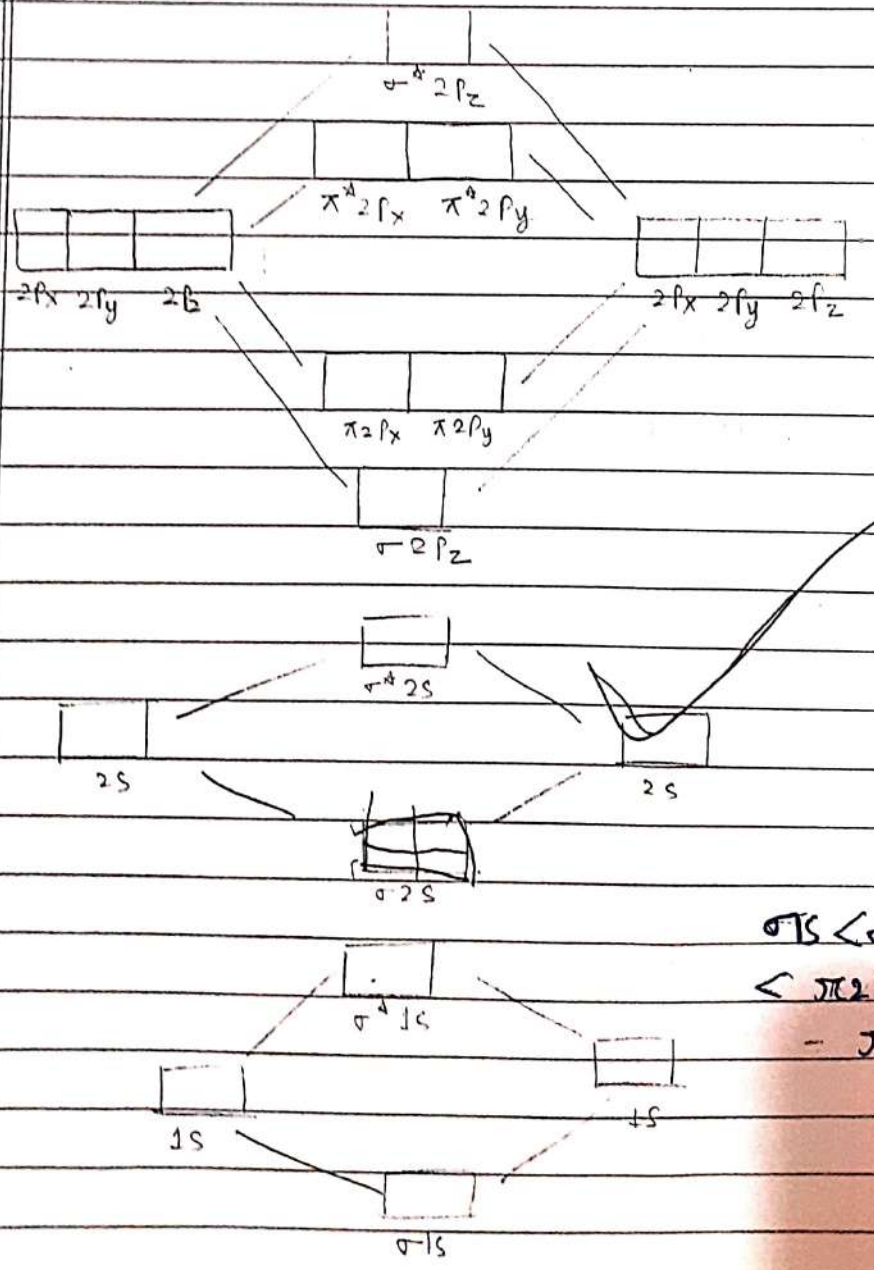 σ* 2Pz
π* 2Px π* 2Py
2Px 2Py 2Pz 2Px 2Py 2Pz
π2Px π2Py
σ2Pz
σ* 2S
2S 2S
σ2S
σ1S <
< π2
σ* 1S
-
1S 1S
σ1S